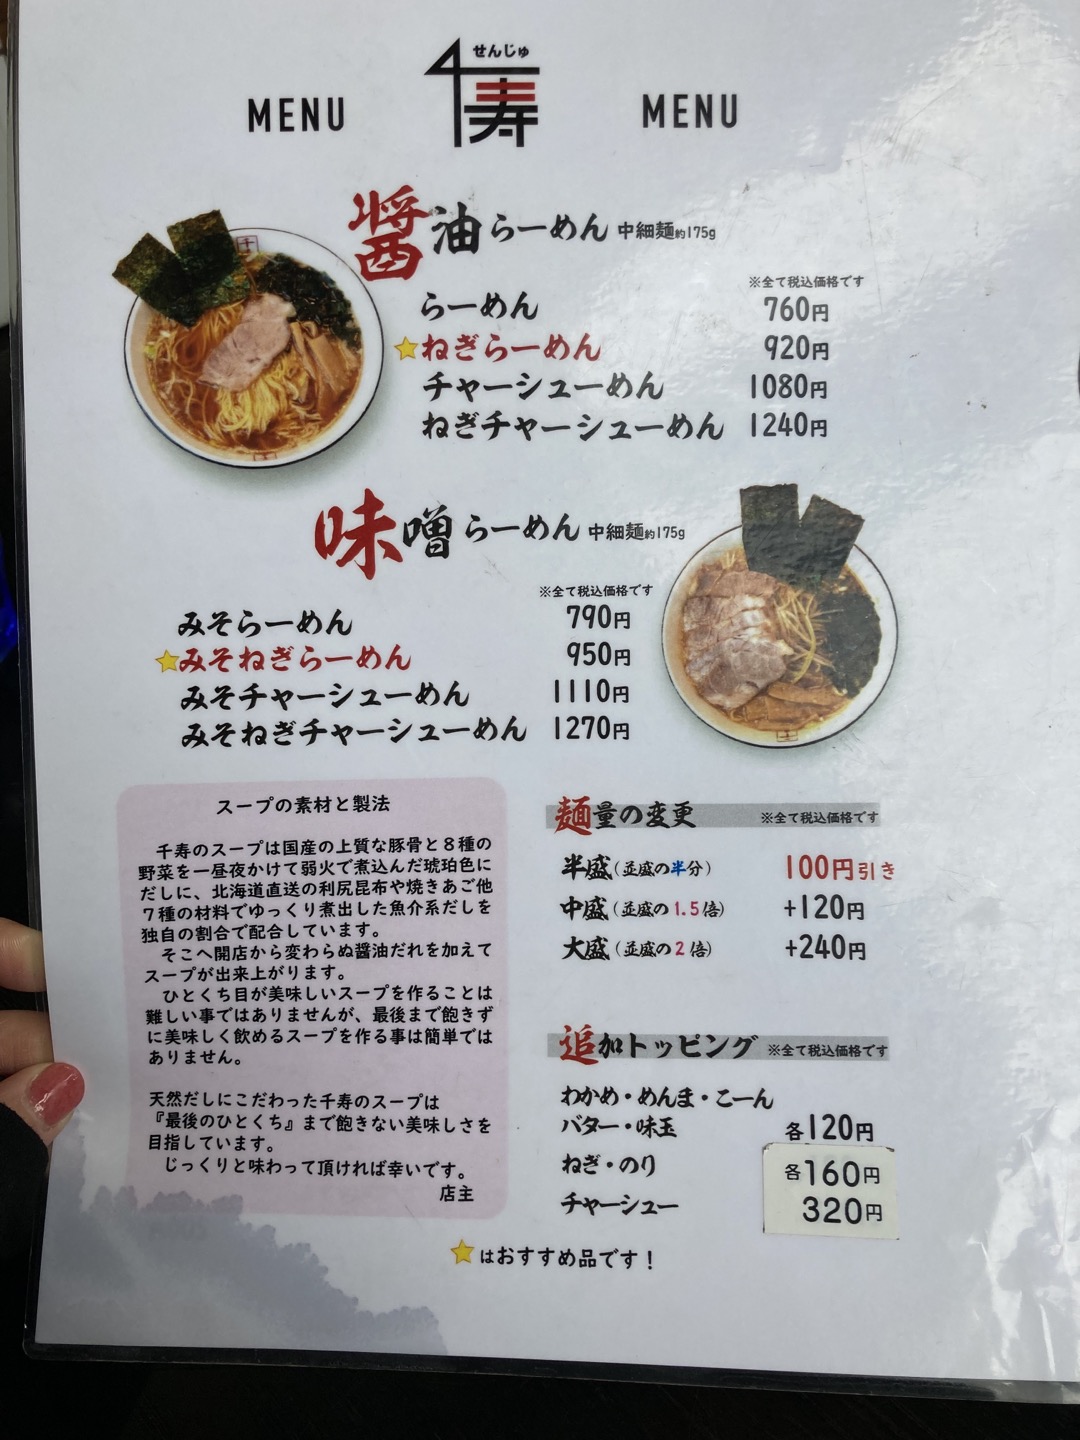 せんじゅ
千寿
MENU
MENU
醤油らーめん 中細麺約175g
※全て税込価格です
らーめん 760円
ねぎらーめん 920円
チャーシューめん 1080円
ねぎチャーシューめん 1240円
味噌らーめん 中細麺約175g
※全て税込価格です
みそらーめん 790円
みそねぎらーめん 950円
みそチャーシューめん 1110円
みそねぎチャーシューめん 1270円
スープの素材と製法
千寿のスープは国産の上質な豚骨と8種の
野菜を一昼夜かけて弱火で煮込んだ琥珀色に
だしに、北海道直送の利尻昆布や焼きあご他
7種の材料でゆっくり煮出した魚介系だしを
独自の割合で配合しています。
そこへ開店から変わらぬ醤油だれを加えて
スープが出来上がります。
ひとくち目が美味しいスープを作ることは
難しい事ではありませんが、最後まで飽きず
に美味しく飲めるスープを作る事は簡単では
ありません。
天然だしにこだわった千寿のスープは
『最後のひとくち』まで飽きない美味しさを
目指しています。
じっくりと味わって頂ければ幸いです。
店主
麺量の変更 ※全て税込価格です
半盛(並盛の半分) 100円引き
中盛(並盛の1.5倍) +120円
大盛(並盛の2倍) +240円
追加トッピング ※全て税込価格です
わかめ・めんま・こーん
バター・味玉 各120円
ねぎ・のり 各160円
チャーシュー 320円
はおすすめ品です!